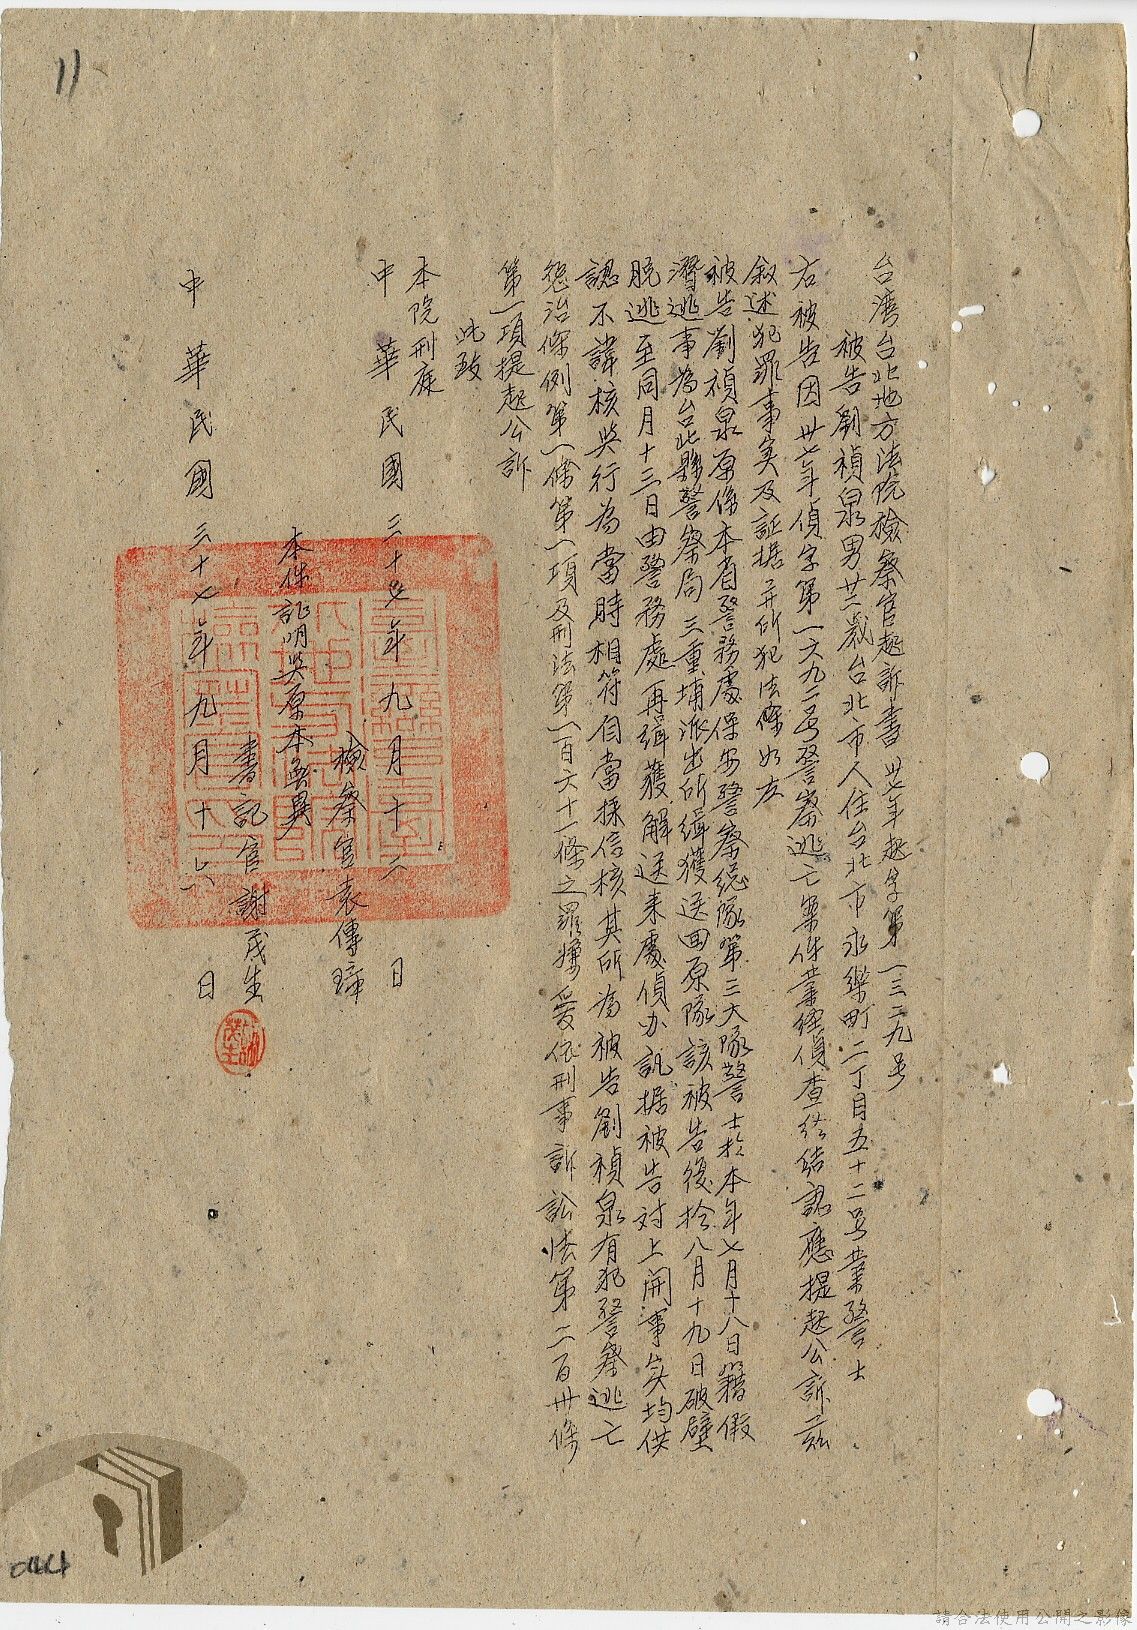 11
台湾台北地方法院檢察官起訴書 卅七年起字第一三二九号
被告劉禎泉男廿二歲台北市人住台北市永樂町二丁目五十二号業警士
右被告因卅七年偵字第一六九二号警察逃亡案件業經偵查終結認應提起公訴玆
叙述犯罪事实及証据并所犯法條如左
被告劉禎泉原係本省警務處保安警察總隊第三大隊警士於本年七月十八日籍假
潛逃事為台北縣警察局三重埔派出所緝獲送回原隊該被告復於八月十九日破壁
脫逃至同月十三日由警務處再緝獲解送來處偵办訊据被告対上開事实均供
認不諱核与行為當時相符自當採信核其所為被告劉禎泉有犯警察逃亡
懲治條例第一條第一項及刑法第一百六十一條之罪嫌爰依刑事訴訟法第二百卅條
第一項提起公訴
此致
本院刑庭
中華民國三十七年九月十二日
檢察官袁傳璋
本件証明与原本無異
書記官謝茂生
中華民國三十七年九月十六日
044
請合法使用公開之影像